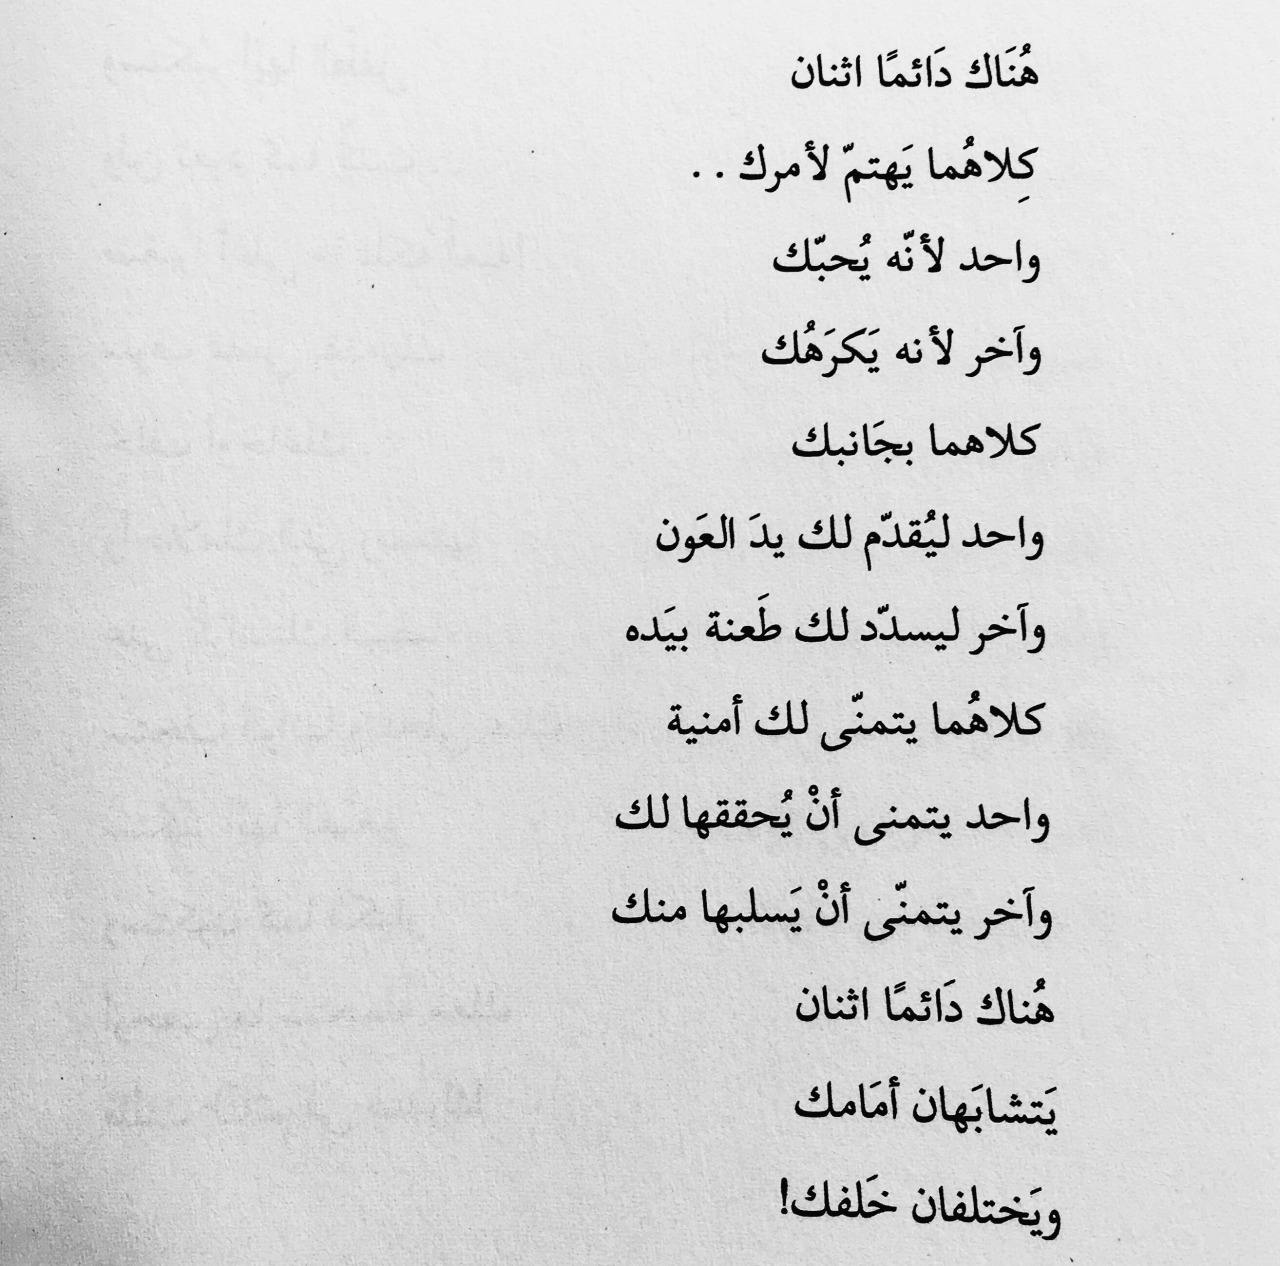 هُنَاك دَائمًا اثنان
كِلاهُما يَهتمّ لأمرك . .
واحد لأنّه يُحبّك
وآخر لأنه يَكرَهُك
كلاهما بجَانبك
واحد ليُقدّم لك يدَ العَون
وآخر ليسدّد لك طَعنة بيَده
كلاهُما يتمنّى لك أمنية
واحد يتمنى أنْ يُحققها لك
وآخر يتمنّى أنْ يَسلبها منك
هُناك دَائمًا اثنان
يَتشابَهان أمَامك
ويَختلفان خَلفك!